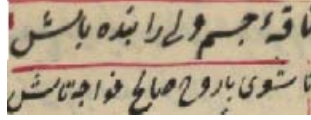 ناقهٔ جسم ولی را بنده باش
تا شوی با روح صالح خواجه‌تاش